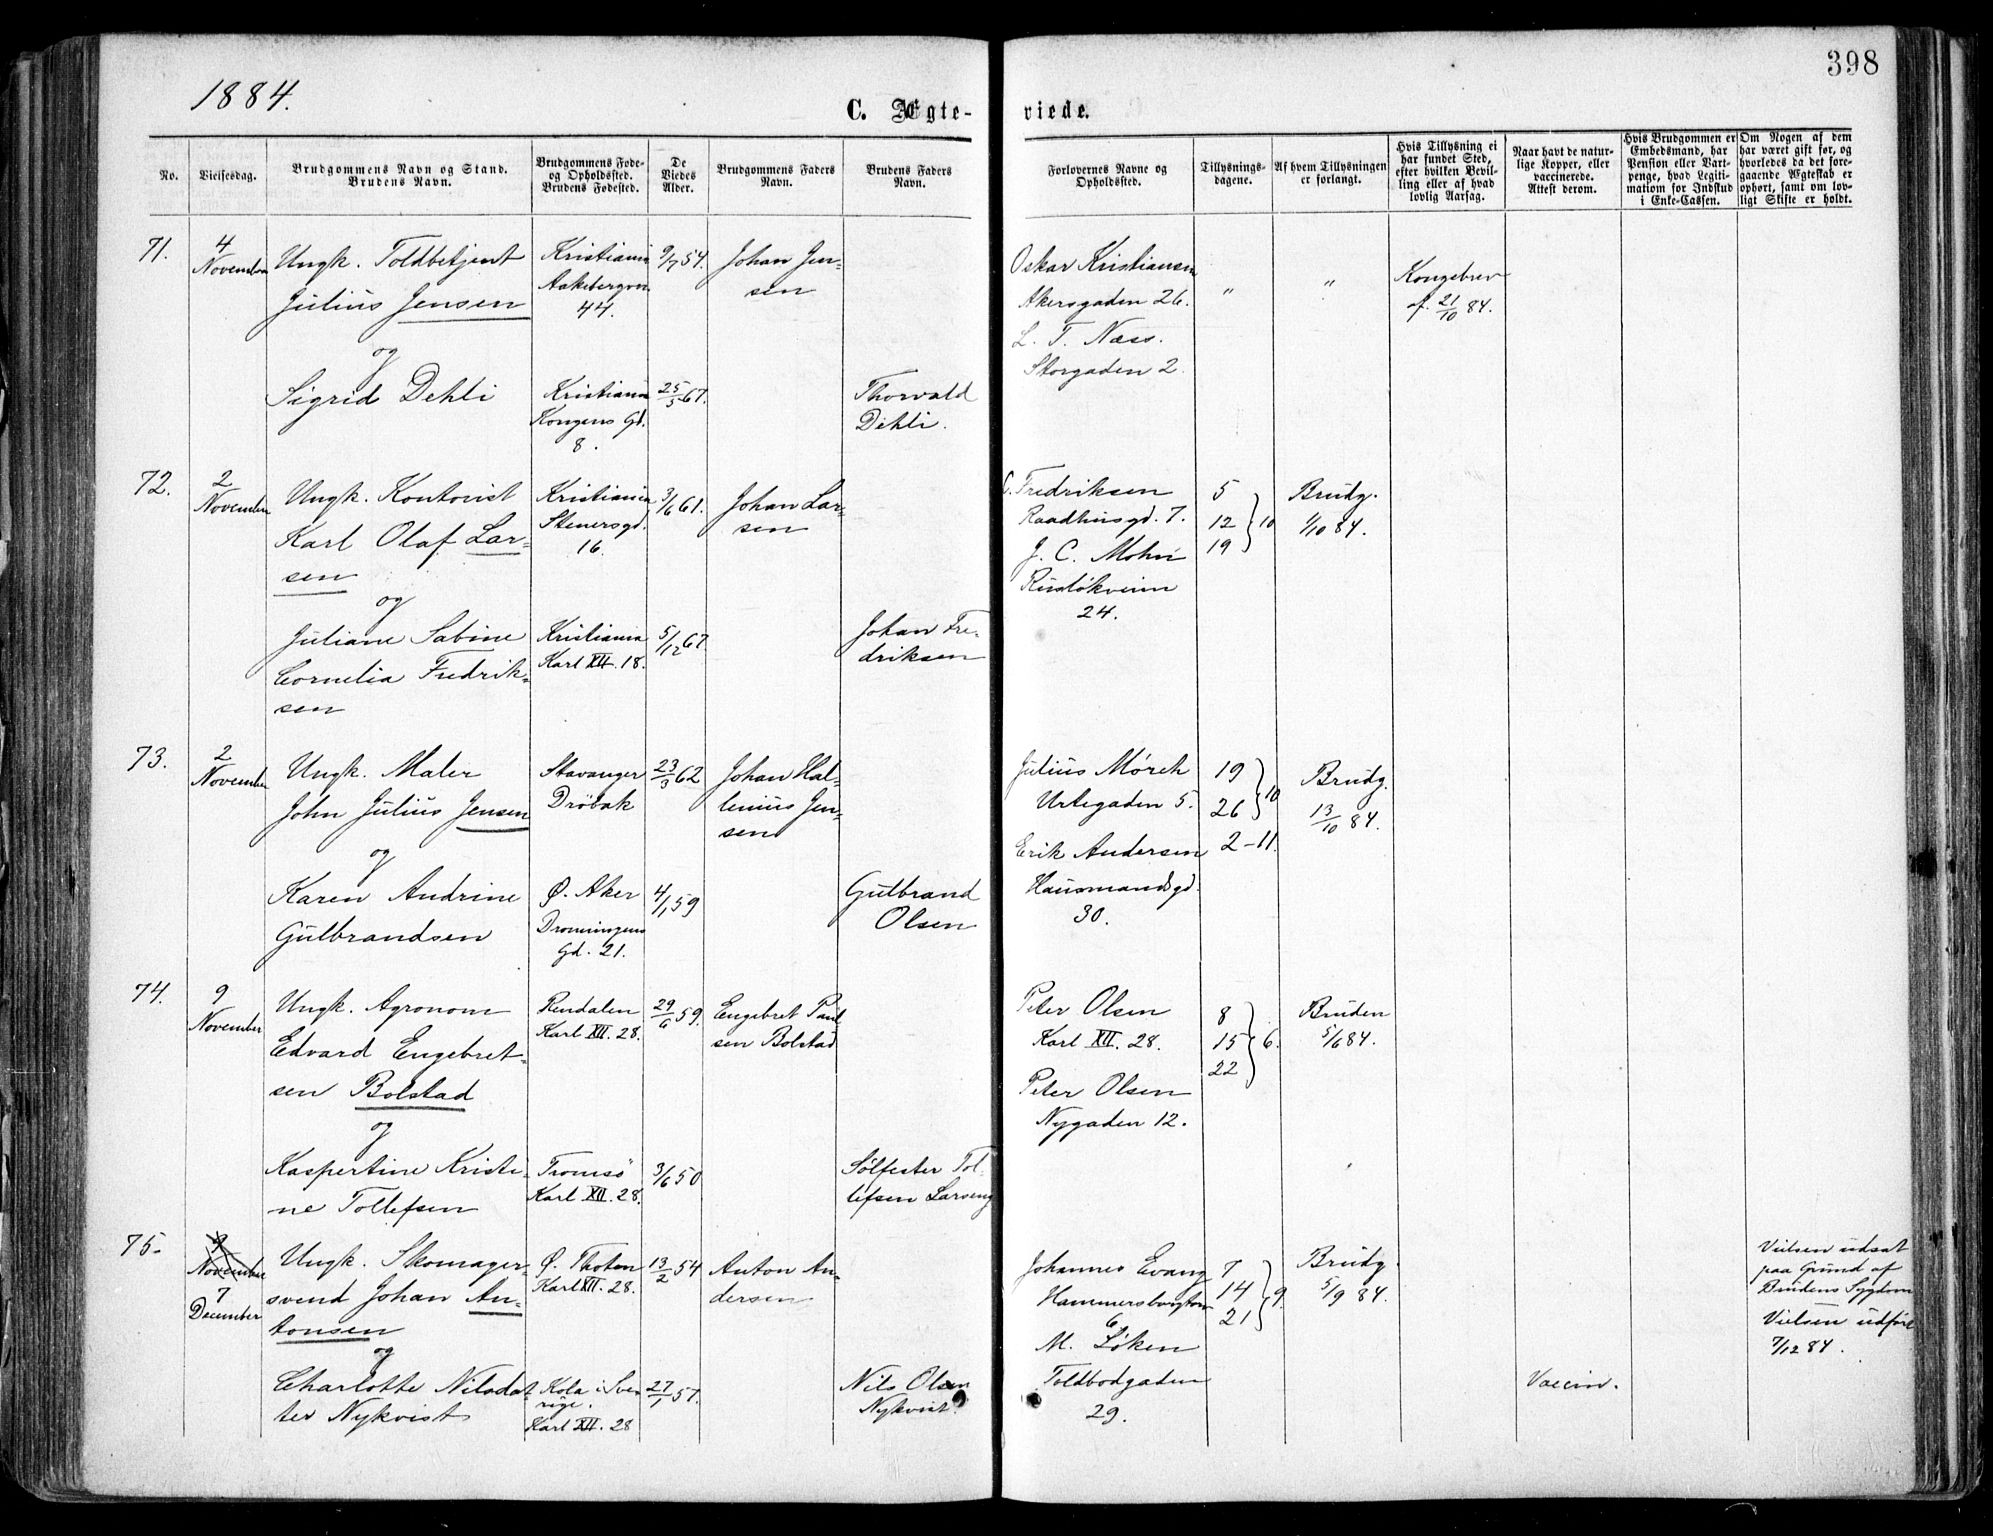 398
1884.
C. Ægte-
viede.
No.
Vielsesdag.
Brudgommens Navn og Stand.
Brudens Navn.
Brudgommens Føde-
og Opholdssted.
Brudens Fødested.
De
Viedes
Alder.
Brudgommens Faders
Navn.
Brudens Faders
Navn.
Forlovernes Navne og
Opholdssted.
Tillysnings-
dagene.
Af hvem Tillysningen
er forlangt.
Hvis Tillysning ei
har fundet Sted,
efter hvilken Bevil-
ling eller af hvad
lovlig Aarsag.
Naar havt de natur-
lige Kopper, eller
vaccinerede.
Attest derom.
Hvis Brudgommen er
Embedsmand, har
Pension eller Vart-
penge, hvad Legiti-
mation for Indskud
i Enke-Cassen.
Om Nogen af dem
har været gift før, og
hvorledes da det fore-
gaaende Ægteskab er
ophørt, samt om lov-
ligt Skifte er holdt.
71.
4
November
Ungk. Toldbetjent
Julius Jensen
og
Sigrid Dehli
Kristiania
Aakebergvn
44.
Kristiania
Kongens Gd.
8.
9/7 54.
25/5 67.
Johan Jen-
sen
Thorvald
Dehli.
Oskar Kristiansen
Akersgaden 26.
L. T. Næss.
Storgaden 2.
"
"
Kongebrev
af 21/10 84.
72.
2
November
Ungk. Kontorist
Karl Olaf Lar-
sen
og
Juliane Sabine
Cornelia Fredrik-
sen
Kristiania
Stenersgd.
16.
Kristiania
Karl XII. 18.
3/6 61.
5/12 67.
Johan Lar-
sen
Johan Fre-
driksen
C. Fredriksen
Raadhusgd. 7.
J. C. Mohn
Rusløkveien
24.
5
12 } 10
19
Brudg.
1/10 84.
73.
2
November
Ungk. Maler
John Julius Jensen
og
Karen Andrine
Gulbrandsen
Stavanger
Drøbak
Ø. Aker
Dronningens
Gd. 21.
23/3 62
4/1 59
Johan Hal-
lenius Jen-
sen
Gulbrand
Olsen
Julius Mørch
Urtegaden 5.
Erik Andersen
Hausmandsgd.
30.
19
26 } 10
2-11.
Brudg.
13/10 84.
74.
9
November
Ungk. Agronom
Edvard Engebret-
sen Bolstad
og
Kaspertine Kristi-
ne Tollefsen
Rendalen
Karl XII. 28.
Tromsø
Karl XII. 28.
29/6 59.
3/6 50
Engebret Paul
sen Bolstad
Sølfester Tol-
lefsen Larseng
Peter Olsen
Karl XII. 28.
Peter Olsen
Nygaden 12.
8
15 } 6.
22
Bruden
5/6 84.
75.
9
November
7
December
Ungk. Skomager-
svend Johan An-
tonsen
og
Charlotte Nilsdat-
ter Nykvist
Ø. Thoten
Karl XII. 28.
Kola i Sve
rige.
Karl XII. 28
13/2 54
27/1 57.
Anton An-
dersen
Nils Olsen
Nykvist.
Johannes Evang
Hammersborgtorv
6
M. Løken
Toldbodgaden
29.
7
14 } 9.
21
Brudg.
5/9 84.
Vaccin.
Vielsen udsat
paa Grund af
Brudens Sygdom
Vielsen udført
7/12 84.